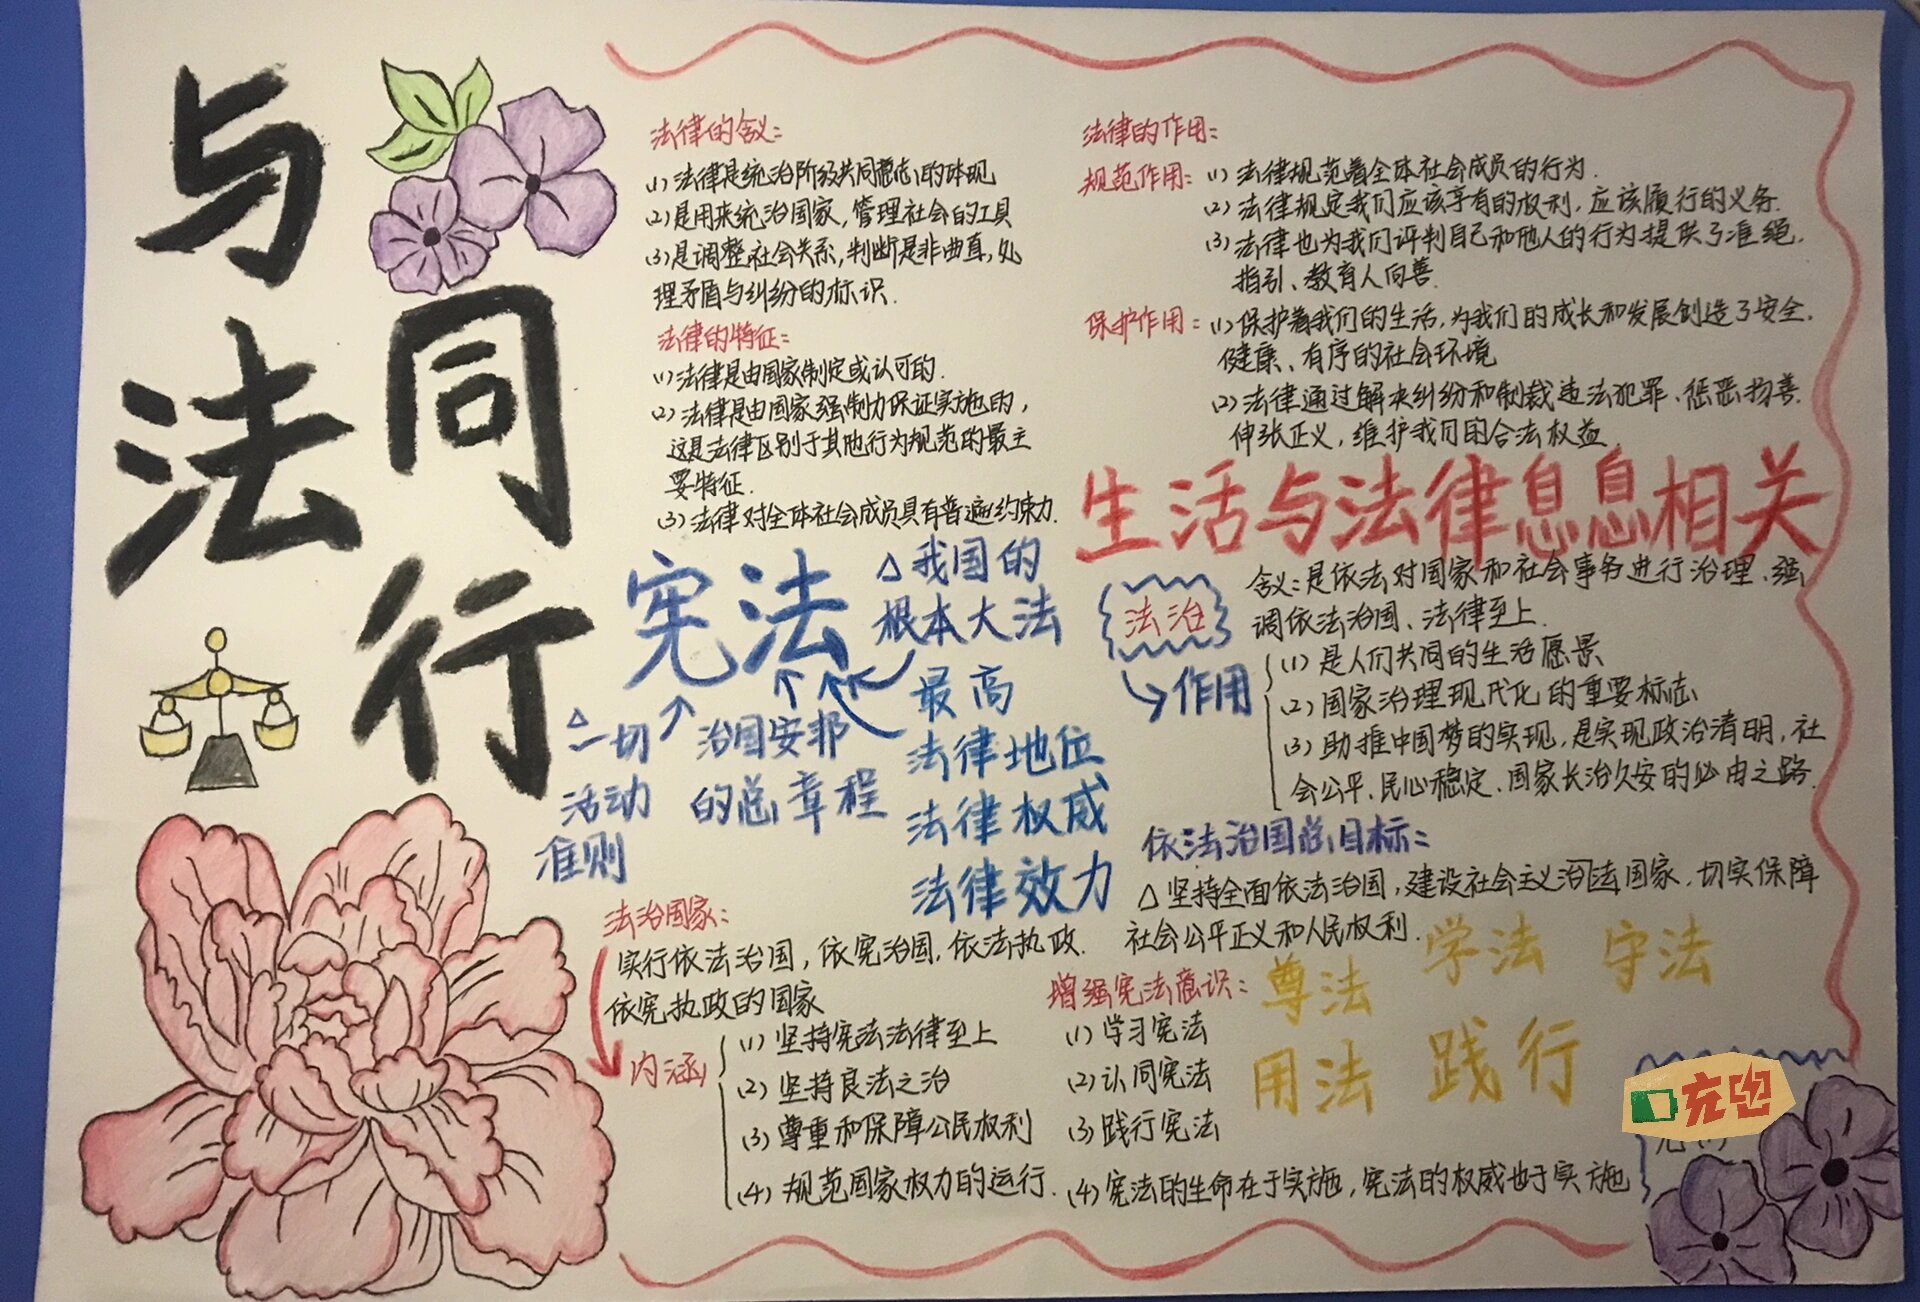 与法同行
法律的含义：
(1)法律是统治阶级共同意志的体现
(2)是用来统治国家，管理社会的工具
(3)是调整社会关系，判断是非曲直，处
理矛盾与纠纷的标识.
法律的特征：
(1)法律是由国家制定或认可的.
(2)法律是由国家强制力保证实施的，
这是法律区别于其他行为规范的最主
要特征.
(3)法律对全体社会成员具有普遍约束力.
法律的作用：
规范作用：(1)法律规范着全体社会成员的行为.
(2)法律规定我们应该享有的权利，应该履行的义务.
(3)法律也为我们评判自己和他人的行为提供了准绳.
指引、教育人向善.
保护作用：(1)保护着我们的生活，为我们的成长和发展创造了安全.
健康、有序的社会环境
(2)法律通过解决纠纷和制裁违法犯罪、惩恶扬善.
伸张正义，维护我们的合法权益.
生活与法律息息相关
宪法
△我国的
根本大法
最高
法律地位
法律权威
法律效力
治国安邦
的总章程
△一切
活动
准则
法治
含义：是依法对国家和社会事务进行治理、强
调依法治国、法律至上.
作用
(1)是人们共同的生活愿景
(2)国家治理现代化的重要标志
(3)助推中国梦的实现，是实现政治清明，社
会公平、民心稳定、国家长治久安的必由之路.
依法治国总目标：
△坚持全面依法治国，建设社会主义法治国家，切实保障
社会公平正义和人民权利.
法治国家：
实行依法治国，依宪治国，依法执政.
依宪执政的国家
内涵
(1)坚持宪法法律至上
(2)坚持良法之治
(3)尊重和保障公民权利
(4)规范国家权力的运行.
增强宪法意识：
(1)学习宪法
(2)认同宪法
(3)践行宪法
(4)宪法的生命在于实施，宪法的权威也于实施
尊法 学法 守法
用法 践行
充电